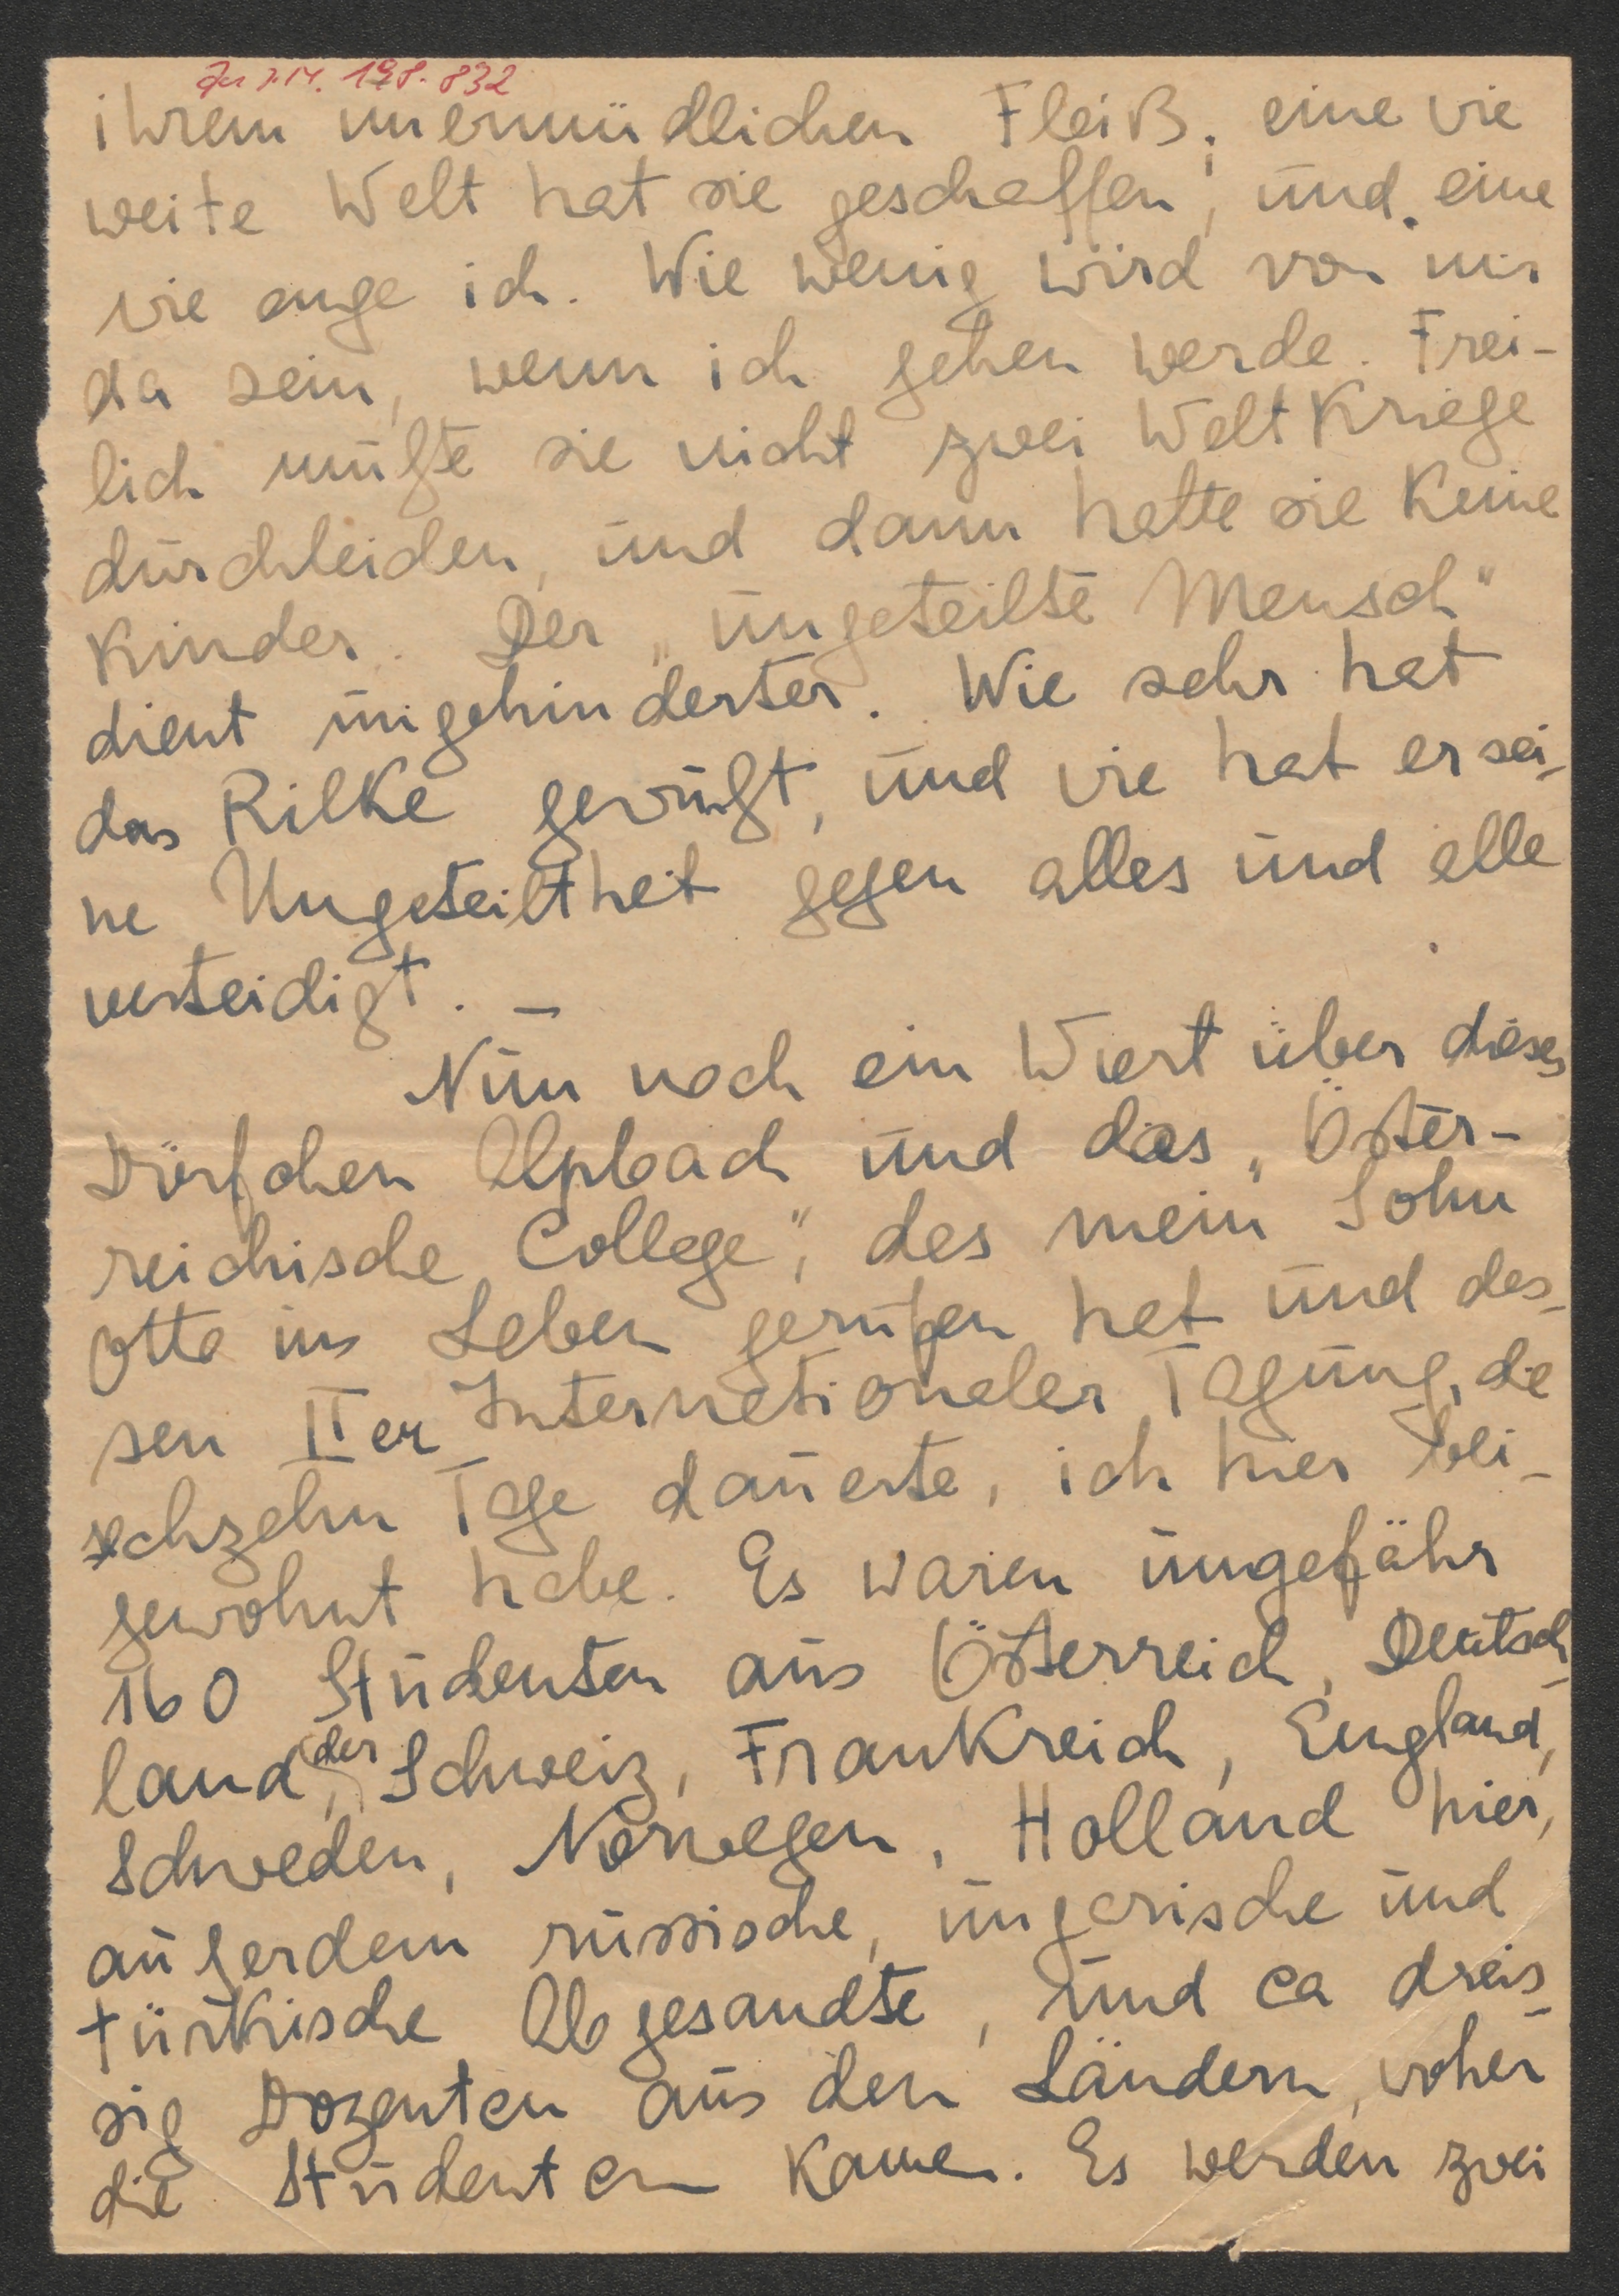 198.832
ihrem unermüdlichen Fleiß; eine wie
weite Welt hat sie geschaffen, und eine
wie enge ich. Wie wenig wird von mir
da sein, wenn ich gehen werde. Frei-
lich mußte sie nicht zwei Weltkriege
durchleiden, und dann hatte sie keine
Kinder. Der „ungeteilte Mensch"
dient ungehinderter. Wie sehr hat
das Rilke gewußt, und wie hat er sei-
ne Ungeteiltheit gegen alles und alle
verteidigt. –
Nun noch ein Wort über dieses
Dörfchen Alpbach und das „Öster-
reichische College", das mein Sohn
Otto ins Leben gerufen hat und des-
sen IIer Internationaler Tagung, die
sechzehn Tage dauerte, ich hier bei-
gewohnt habe. Es waren ungefähr
160 Studenten aus Österreich, Deutsch-
land, der Schweiz, Frankreich, England,
Schweden, Norwegen, Holland hier,
außerdem russische, ungarische und
türkische Abgesandte, und ca dreis-
sig Dozenten aus den Ländern, woher
die Studenten kamen. Es werden zwei